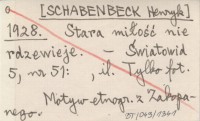 a [SCHABENBECK Henryk]
1928. Stara miłość nie
rdzewieje. – Światowid
5, nr 51: , il. Tylko fot.
Motyw etnogr. z Zakopa-
nego.